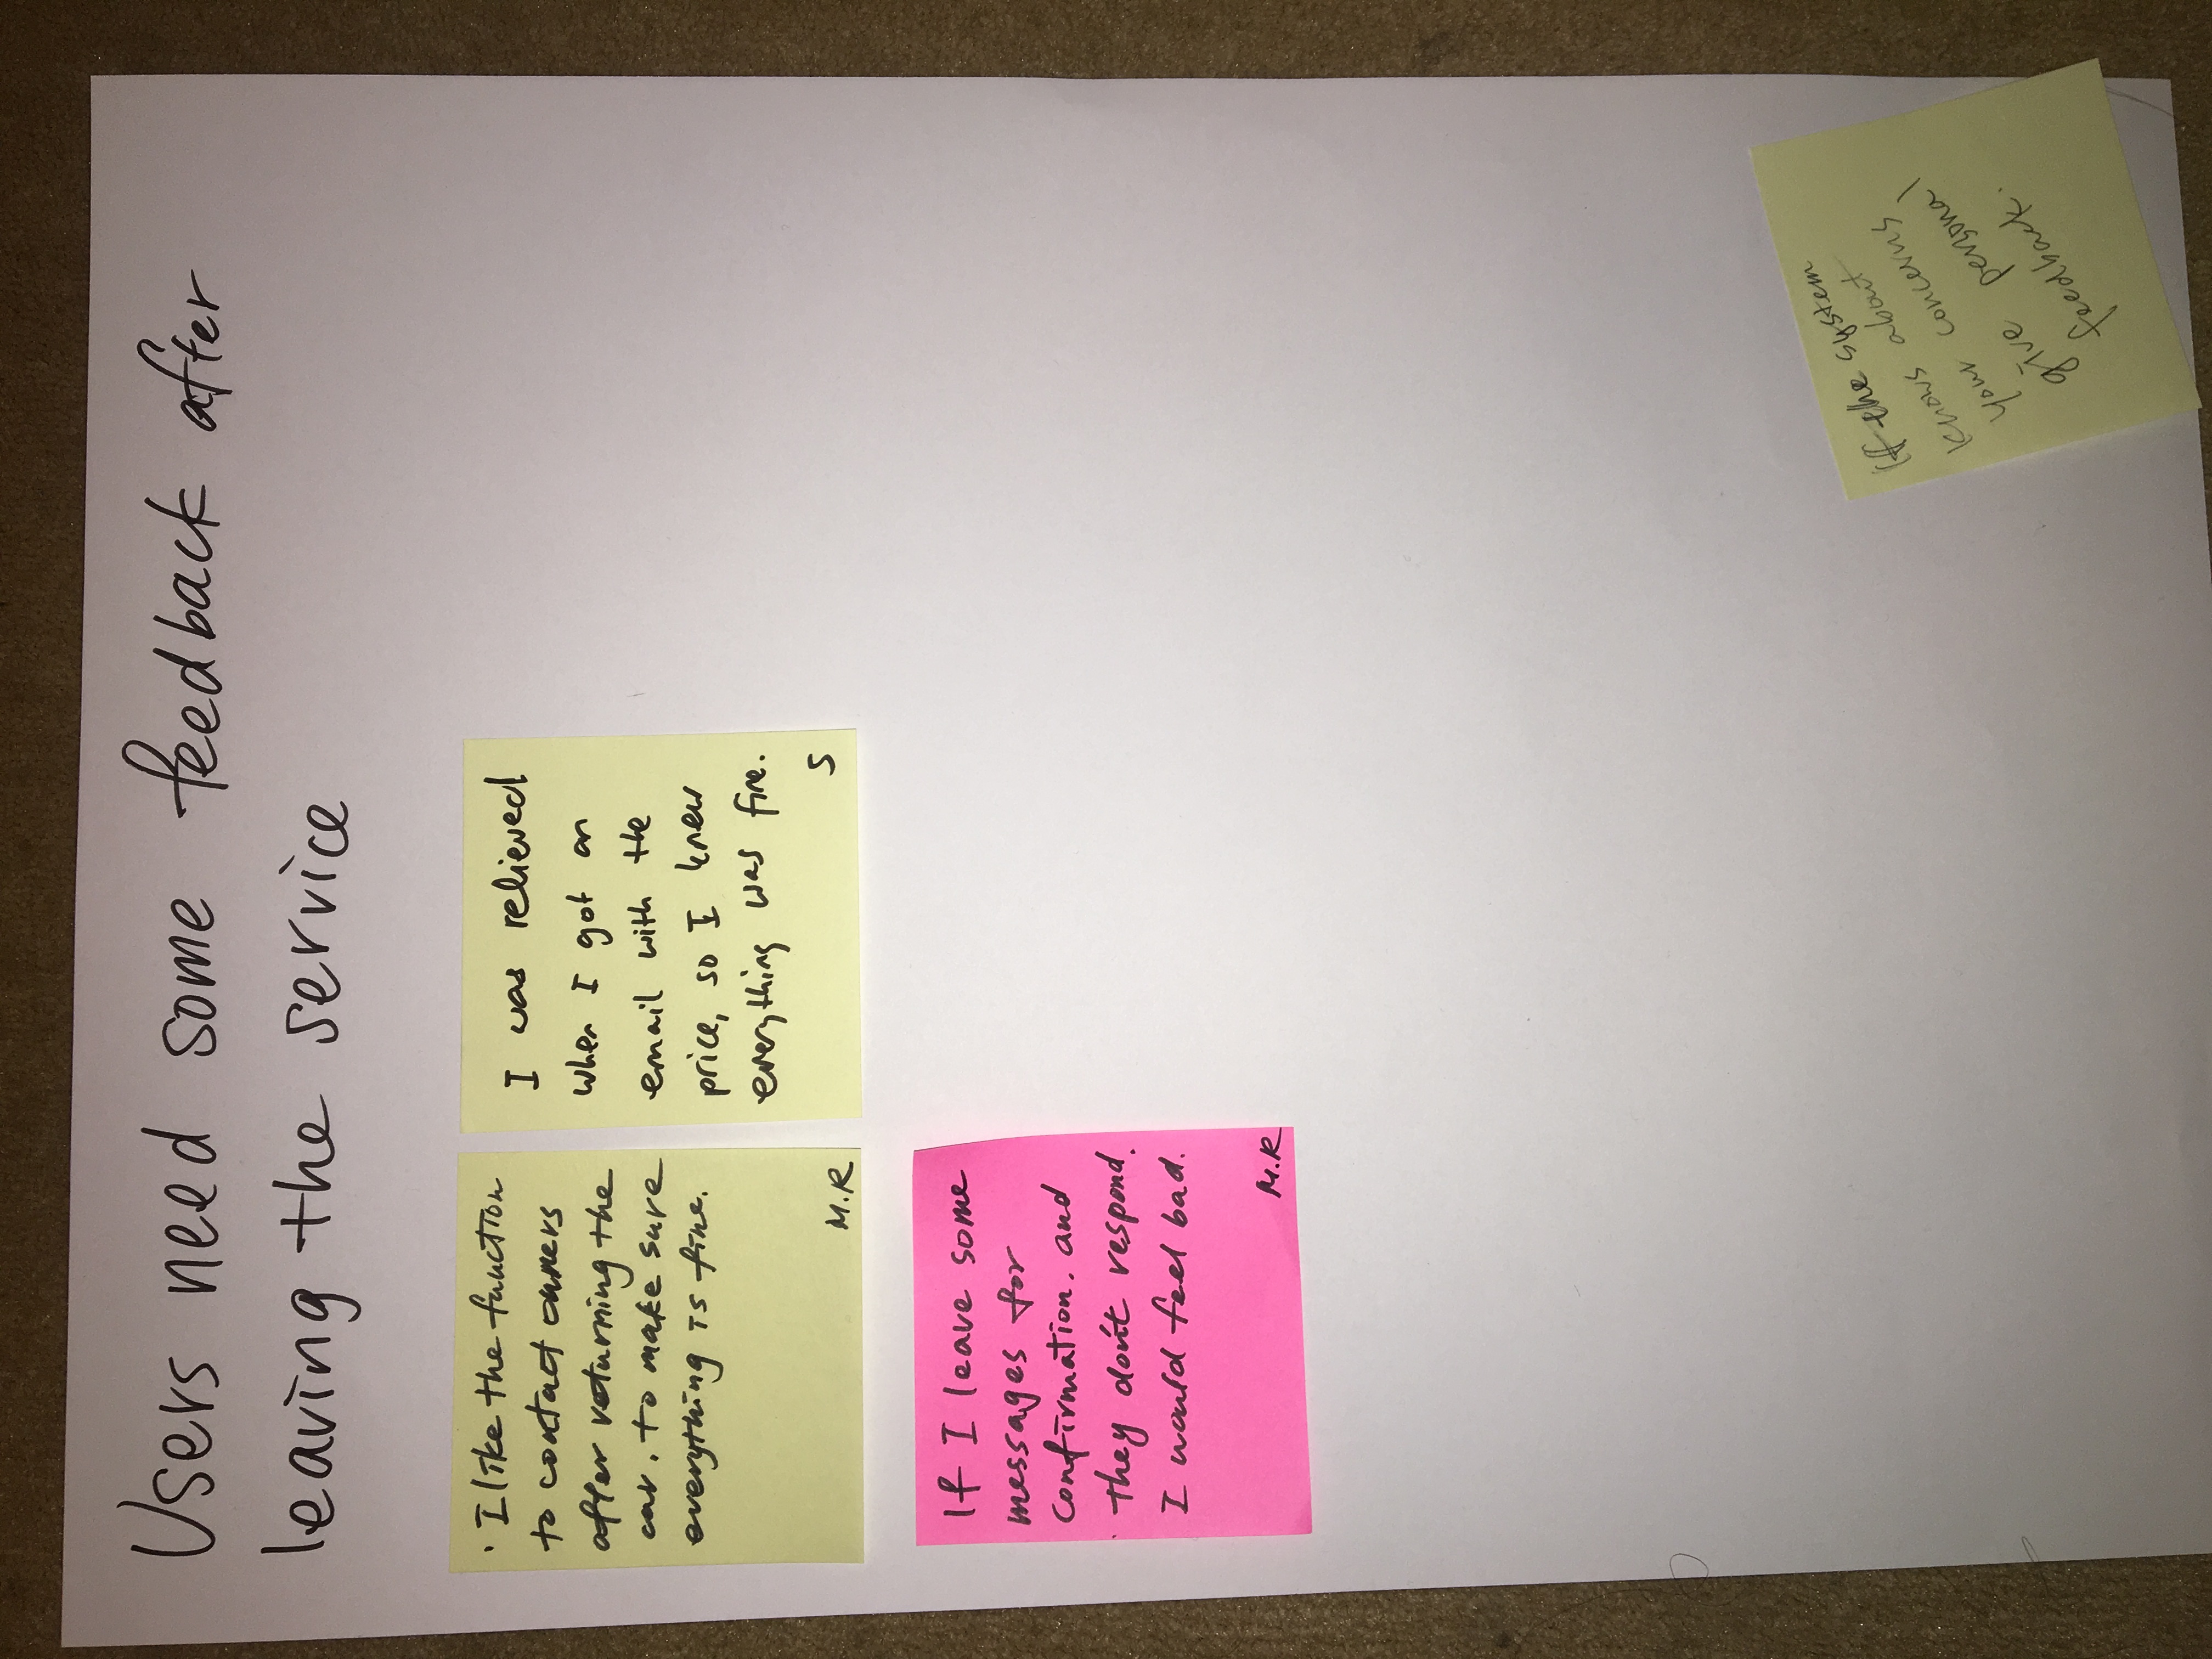 Users need some feedback after
leaving the service
· I like the function
to contact owners
after returning the
car. to make sure
everything is fine.
M.R
I was relieved
when I got an
email with the
price, so I knew
everything was fine.
S
If I leave some
messages for
confirmation. and
they don't respond.
I would feel bad.
M.R
If the system
knows about
your concerns
give personal
feedback.